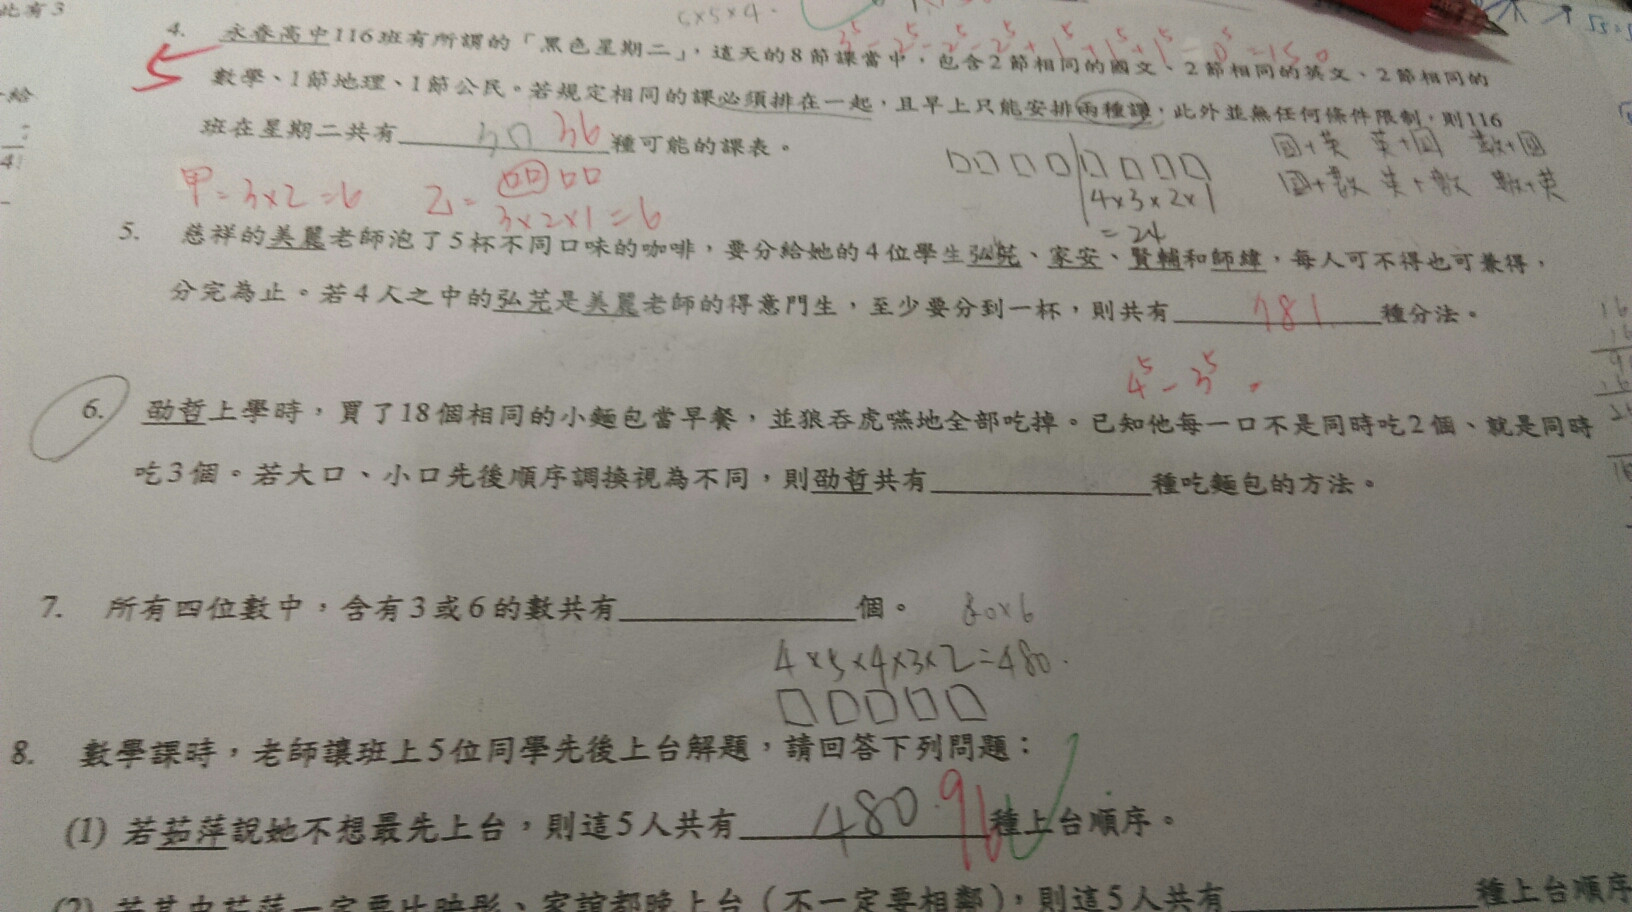 此有3
5×5×4
3⁵-2⁵-2⁵-2⁵+1⁵+1⁵+1⁵-0⁵=150
4. 永春高中116班有所謂的「黑色星期二」，這天的8節課當中，包含2節相同的國文、2節相同的英文、2節相同的
5
數學、1節地理、1節公民。若規定相同的課必須排在一起，且早上只能安排兩種課，此外並無任何條件限制，則116
班在星期二共有 30 36 種可能的課表。
給
4!
國+英 英+國 數+國
國+數 英+數 數+英
甲=3×2=6 乙=3×2×1=6
4×3×2×1
=24
5. 慈祥的美麗老師泡了5杯不同口味的咖啡，要分給她的4位學生弘芫、家安、賢輔和師緯，每人可不得也可兼得，
分完為止。若4人之中的弘芫是美麗老師的得意門生，至少要分到一杯，則共有 781 種分法。
4⁵-3⁵=
6. 劭哲上學時，買了18個相同的小麵包當早餐，並狼吞虎嚥地全部吃掉。已知他每一口不是同時吃2個、就是同時
吃3個。若大口、小口先後順序調換視為不同，則劭哲共有種吃麵包的方法。
7. 所有四位數中，含有3或6的數共有個。
80×6
4×5×4×3×2=480
8. 數學課時，老師讓班上5位同學先後上台解題，請回答下列問題：
(1) 若茹萍說她不想最先上台，則這5人共有 480 96 種上台順序。
(2) 若其中茹萍一定要比映彤、家誼都晚上台（不一定要相鄰），則這5人共有種上台順序